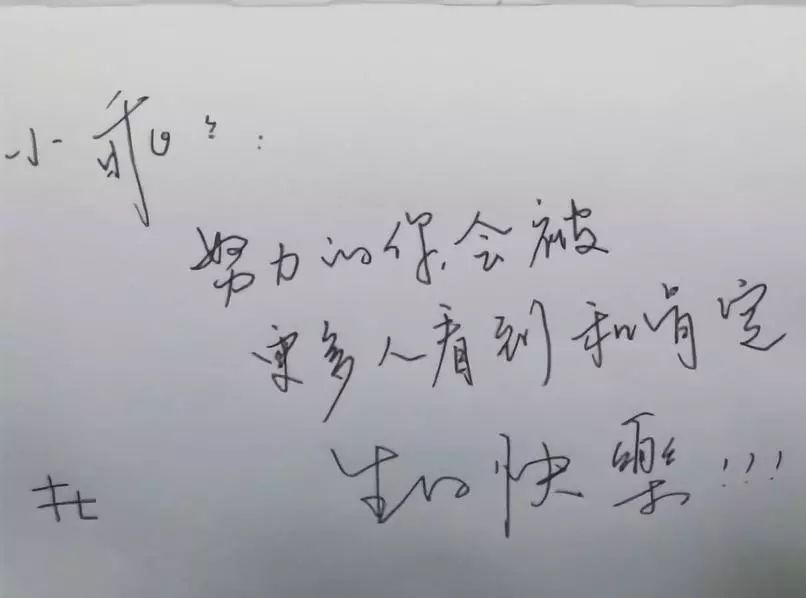 小乖々：
努力的你会被
更多人看到和肯定
生日快樂!!!